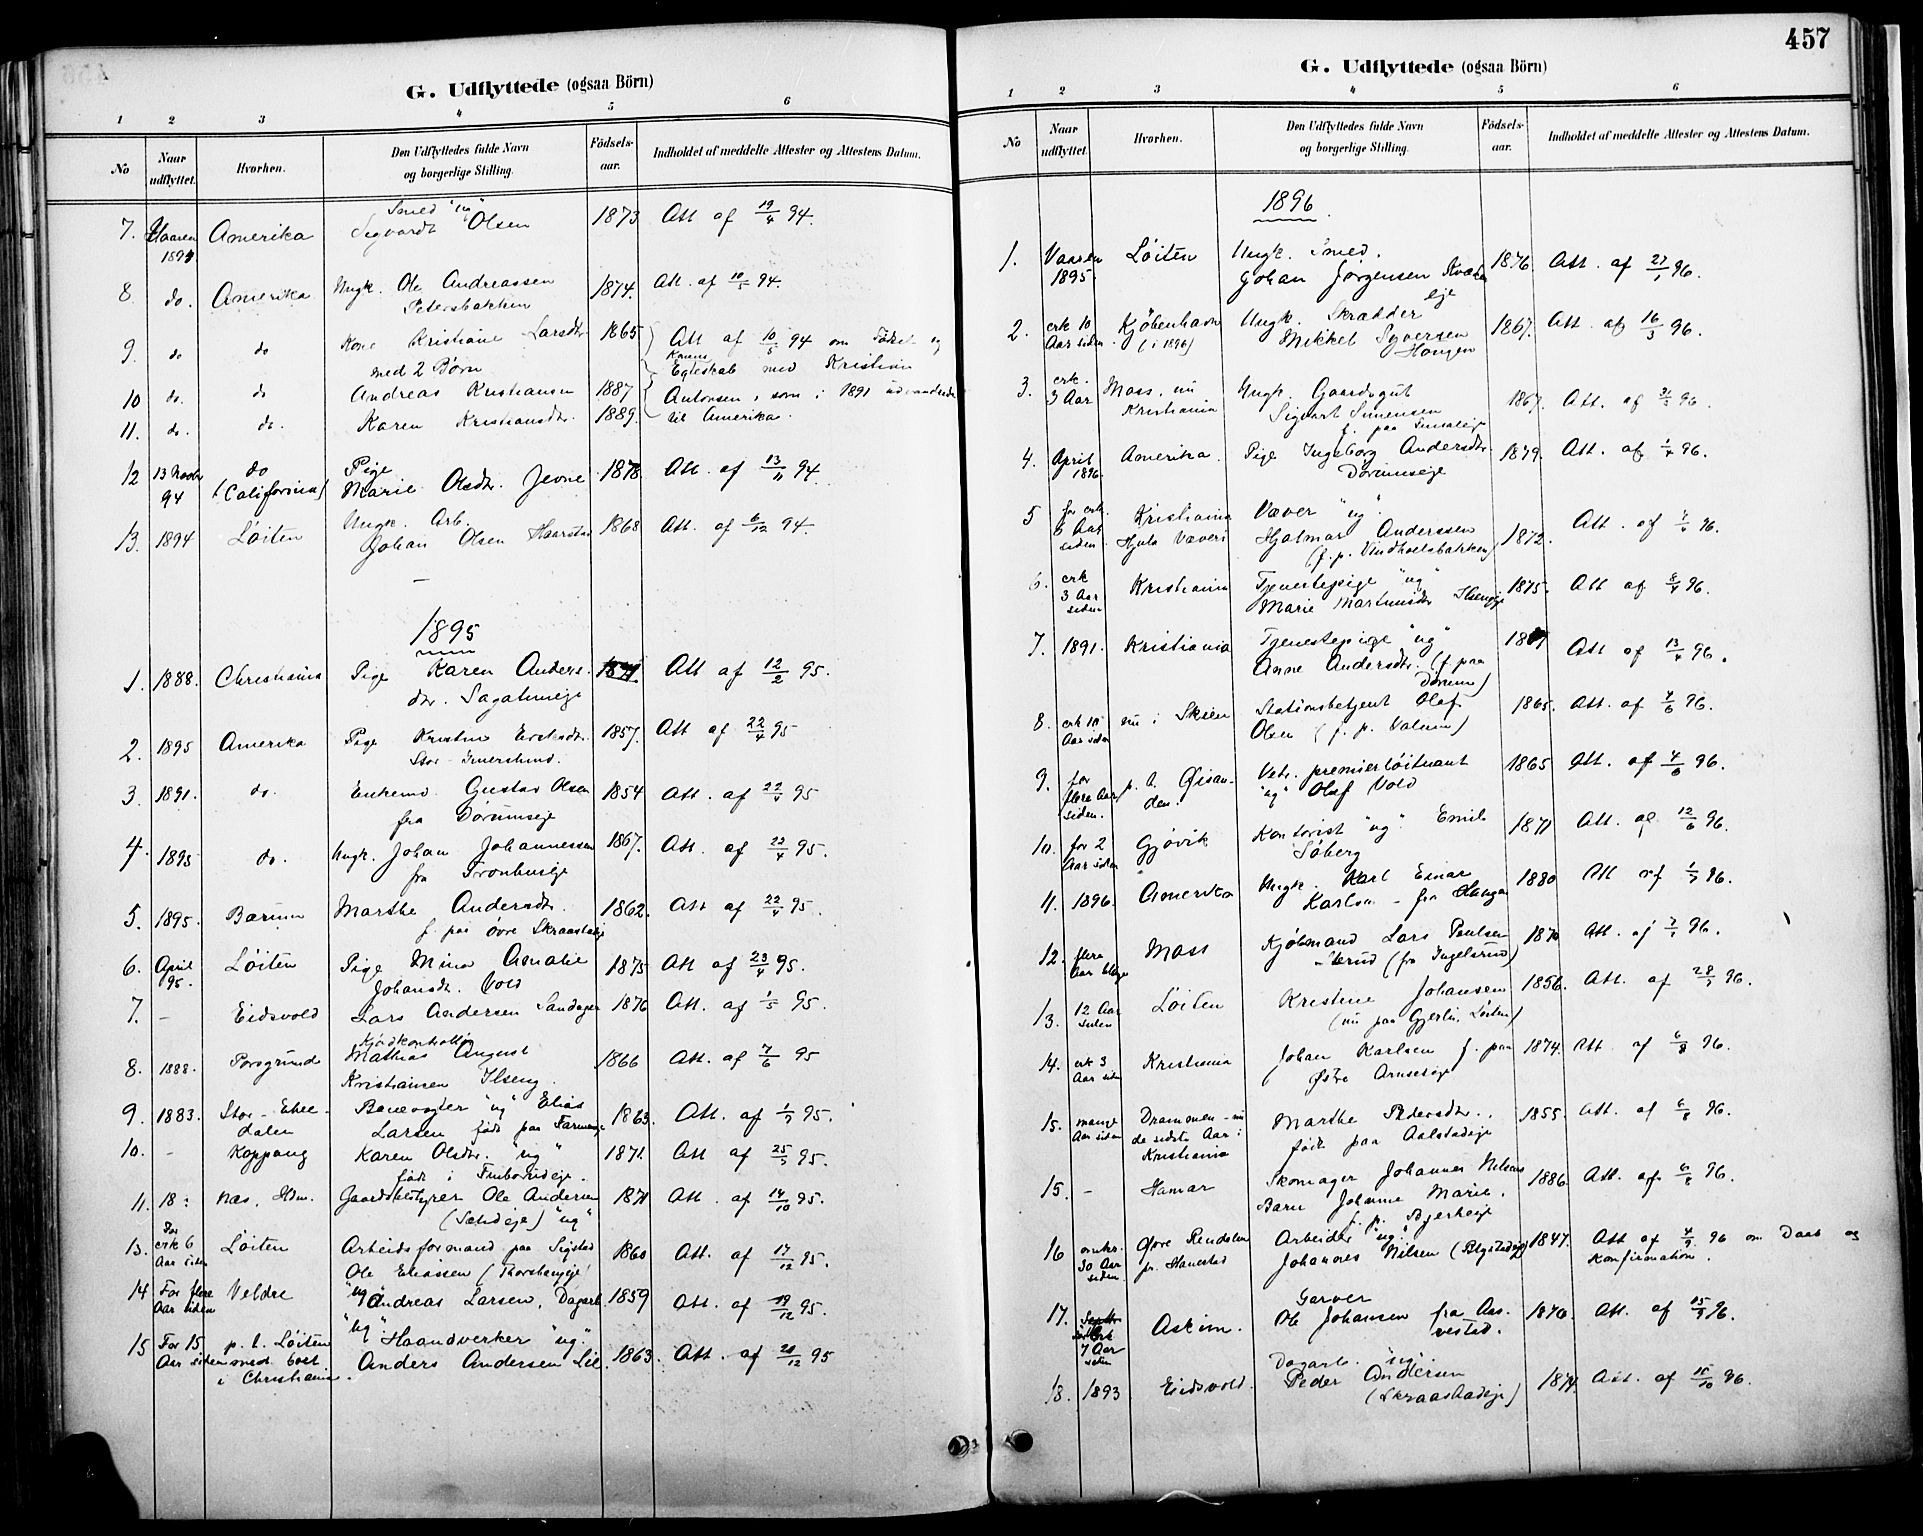 457
G. Udflyttede (ogsaa Börn)
1 2 3 4 5 6
No Naar udflyttet. Hvorhen. Den Udflyttedes fulde Navn og borgerlige Stilling. Fødsels-aar. Indholdet af meddelte Attester og Attestens Datum.
7. Vaaren 1894 Amerika Smed "ug" Sigvardt Olsen 1873 Att af 19/4 94.
8 do. Amerika Ungk. Ole Andreassen Petersbakken 1874. Att. af 10/5 94.
9. do do Kone Kristiane Larsdtr. 1865 Att af 10/5 94 om Födsel og
med 2 Börn Egteskab med Kristian
10 do. do Andreas Kristiansen 1887 Antonsen, som i 1891 udvandrede
11. do. do. Karen Kristiansdtr. 1889. til Amerika.
12 13 Novbr 94 do (California) Pige Marie Olsdtr. Jevne 1878. Att. af 13/11 94.
13. 1894 Løiten Ungk. Arb. Johan Olsen Haarstad 1868 Att. af 6/12 94.
1895
1. 1888. Christiania Pige Karen Andersdtr. 1871. Att af 12/2 95.
2. 1895 Amerika Pige 1857. Att af 22/4 95
3. 1891. do. Enkemd. Gustav Olsen fra Dørumseje 1854 Att. af 22/4 95
4. 1895 do. Ungk. Johan Johannessen fra Tronhuseje 1867. Att. af 22/4 95.
5. 1895. Bærum Marthe Andersdtr. f. paa övre Skraastadeje 1862. Att af 22/4 95.
6. April 95. Løiten Pige Mina Amalie Johansdt. Vold 1875 Att af 23/4 95.
7. – Eidsvold Lars Andersen Sandager 1876 Att. af 1/5 95.
8. 1888. Porsgrund Kjødkontrollör Mathias August Kristiansen Ilseng. 1866 Att. af 7/6 95
9. 1883. Stor-Elvedalen Banevogter "ug" Elias Larsen född paa 1863. Att. af 1/7 95.
10. – Koppang Karen Olsdtr. "ug" 1871. Att af 25/7 95.
11. 18: Næs, Hdm. Gaardsbestyrer Ole Andersen "ug" 1871 Att. af 14/10 95.
13. For crk 6 Aar siden Løiten Arbeidsformand paa Sigstad Ole Eliassen 1860 Att. af 17/12 95.
14 For flere Aar siden Veldre "ug" Andreas Larsen, Dagarb. "ug" 1859 Att. af 19/12 95.
15 For 15 Aar siden p. t. Løiten med bost. i Christiania. Haandverker "ug". Anders Andersen Lie. 1863. Att. af 20/12 95
G. Udflyttede (ogsaa Börn)
1 2 3 4 5 6
No Naar udflyttet. Hvorhen. Den Udflyttedes fulde Navn og borgerlige Stilling. Fødsels-aar. Indholdet af meddelte Attester og Attestens Datum.
1896
1. Vaaren 1895. Løiten Ungk. Smed. Johan Jørgensen 1876. Att. af 27/1 96.
2. crk 10 Aar siden. Kjöbenhavn (i 1896) Ungk. Skrædder Mikkel Syversen Haugen 1867. Att. af 16/3 96.
3. crk. 3 Aar Moss, nu Kristiania Ungk. Gaardsgut Sigvart Simensen 1867. Att. af 31/3 96.
4. April 1896. Amerika. Pige Ingeborg Andersdtr Dørumseje 1879. Att. af 1/4 96.
5 for crk. 6 Aar siden. Kristiania Hjula Væveri Væver "ug". Hjalmar Anderssen (f. p. Vindhoelsbakken) 1872. Att. af 7/4 96.
6. crk 3 Aar siden Kristiania Tjenestepige "ug" Marie Martinsdtr Ilsengeje 1875. Att af 8/4 96.
7. 1891. Kristiania Tjenestepige "ug" Anne Andersdtr. (f. paa Dørum) Att af 13/4 96.
8. crk 10 Aar siden nu i Skien Stationsbetjent Olaf Olsen (f. p. Valum) 1865. Att. af 4/6 96.
9. for flere Aar siden. Vetr. premierløitnant "ug" Olaf Vold 1865 Att. af 4/6 96.
10. for 2 Aar siden Gjøvik Kontorist "ug". Emil Søberg 1871 Att. af 12/6 96.
11. 1896. Amerika Ungk. Karl Einar Karlsen – fra Haugen 1880 Att af 1/7 96.
12. flere Aar Moss Kjøbmand Lars Paulsen (fra Ingelsrud) 1870 Att. af 7/7 96.
13. 12 Aar siden Løiten Kristine Johansen (nu paa Gjerlu, Löiten) 1856. Att. af 28/7 96.
14. crk 3 Aar siden Kristiania Johan Karlsen f. paa Østre Arneseje 1874. Att. af 6/8 96.
15. mange Aar siden Drammen – nu de sidste Aar i Kristiania Marthe Pedersdtr. född paa Aalstadeje 1855. Att. af 6/8 96.
15. – Hamar Skomager Johannes Nilsens Barn Johanne Marie. f. p. Bjerkeeje 1886. Att. af 6/8 96.
16 omkr. 30 Aar siden. Øvre Rendalen pr. Hanestad Arbeider "ug". Johannes Nilsen 1847. Att af 4/9 96 om Daab og Konfirmation.
17. 7 Aar siden Askim. Garver Ole Johansen fra 1870. Att. af 15/9 96.
18. 1893 Eidsvold. Dagarb. "ug". Peder Andersen (Skraastadeje) 1874. Att. af 15/10 96.